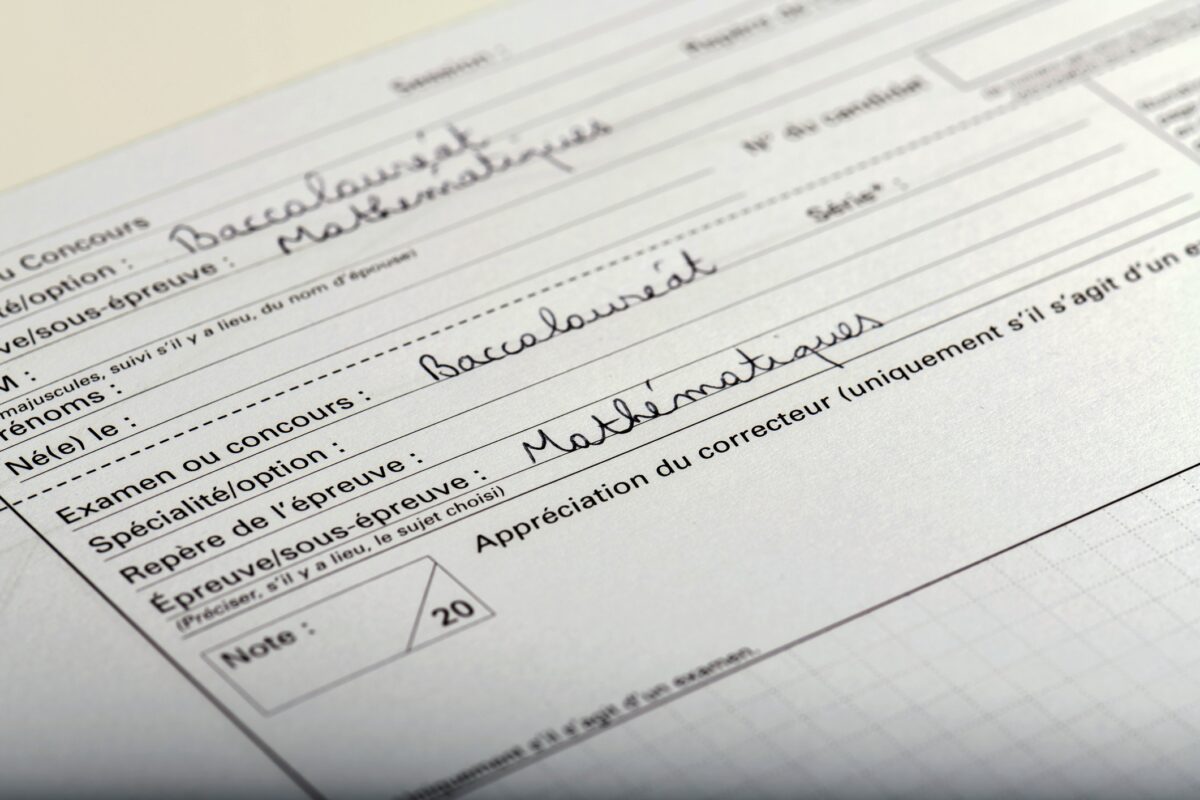 Session :
Repère de
u Concours Baccalauréat
té/option :
ve/sous-épreuve : Mathématiques
N° du candidat
M :
majuscules, suivi s'il y a lieu, du nom d'épouse)
rénoms :
Né(e) le :
Série* :
Examen ou concours : Baccalauréat
Spécialité/option :
Repère de l'épreuve :
Épreuve/sous-épreuve : Mathématiques
(Préciser, s'il y a lieu, le sujet choisi)
Appréciation du correcteur (uniquement s'il s'agit d'un e
Note : 20
iquement s'il s'agit d'un examen.